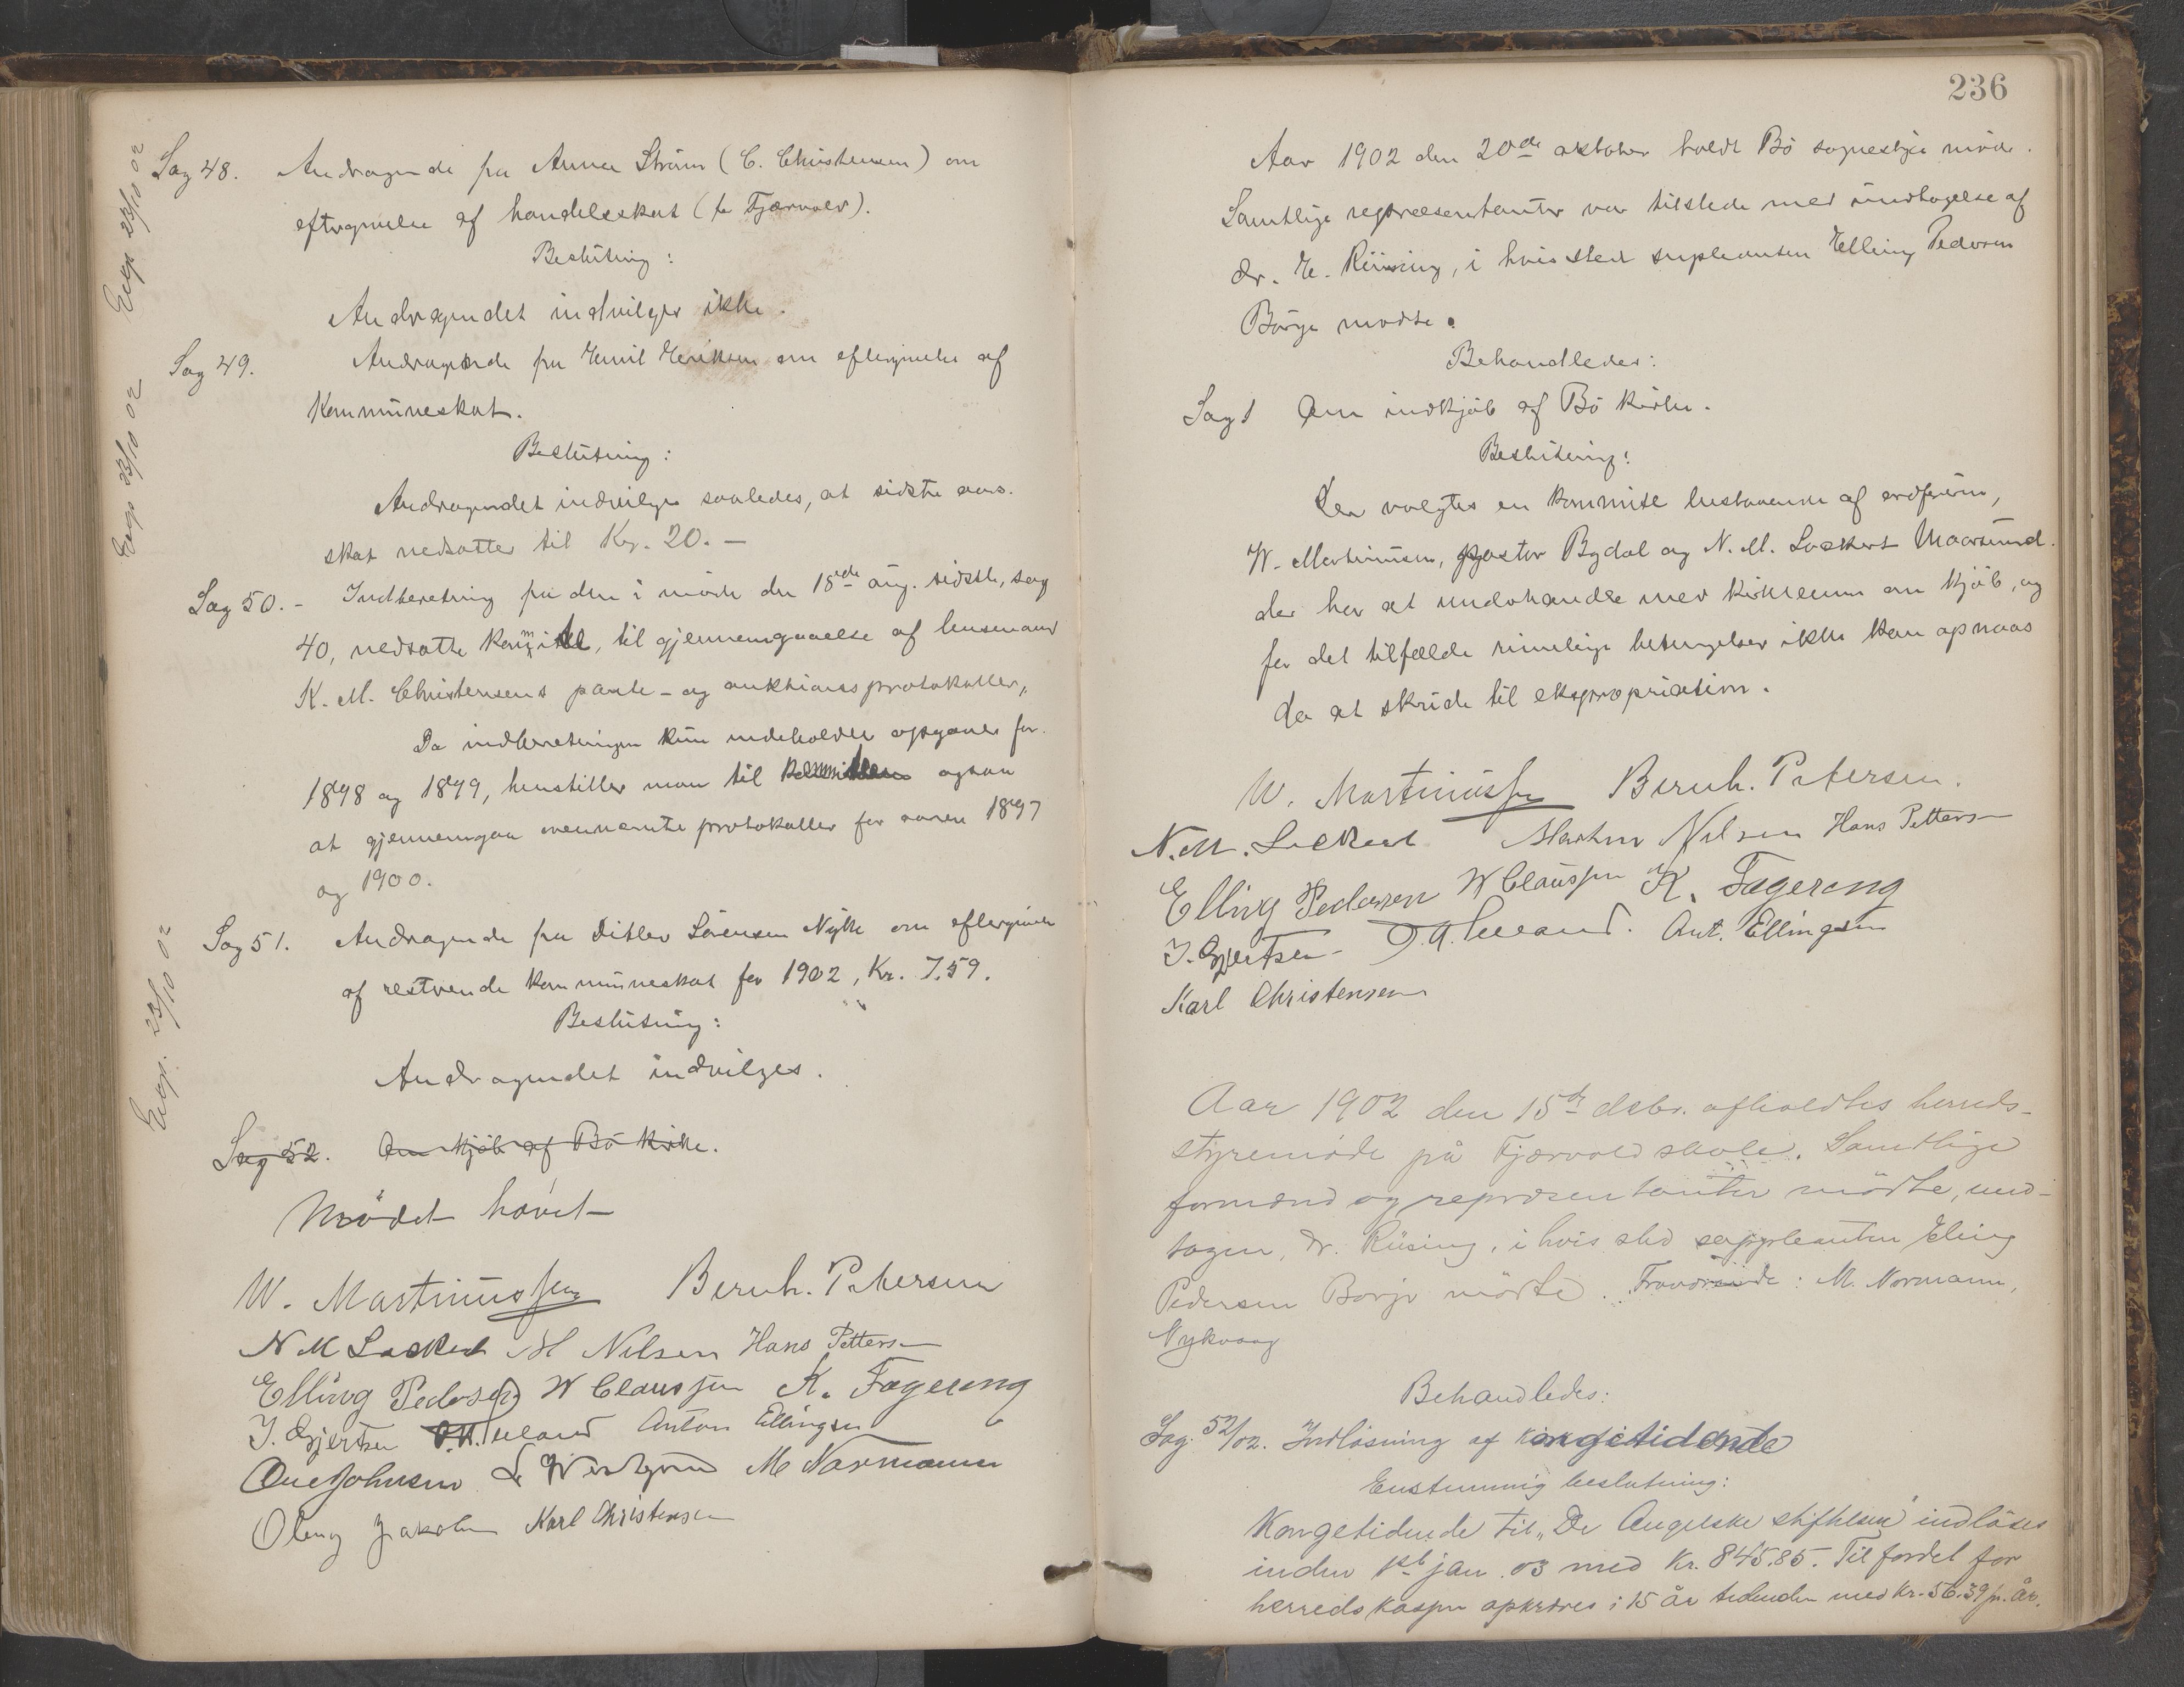 Sag 48. Andragende fra Anna Ström (C. Christensen) om
eftergivelse af handelsskat (fra Fjærvoll).
Beslutning:
Andragendet indvilges ikke.
Exp 23/10 02
Sag 49. Andragende fra Emil Eriksen om eftergivelse af
kommuneskat.
Beslutning:
Andragendet indvilges saaledes, at sidste aars
skat nedsættes til Kr. 20. –
Exp 23/10 02
Sag 50. – Indberetning fra den i möde den 18de aug. sidstl., sag
40, nedsatte komite, til gjennemgaaelse af lensmand
K. M. Christensens pante- og auktionsprotokoller,
Da indberetningen kun indeholder opgaver for
1898 og 1899, henstiller man til komiteen ogsaa
at gjennemgaa ovennævnte protokoller for aaren 1897
og 1900.
Sag 51. Andragende fra Ditlev Sörensen Nykh om eftergivelse
af restrende kommuneskat for 1902, Kr. 7.59.
Beslutning:
Andragendet indvilges.
Exp. 23/10 02
Sag 52. Om kjöb af Bö kirke.
Mödet hævet
W. Martinussen Bernh. Petersen
N M Lockert M Nilsen Hans Petters
Elling Pedersen W Claussen K. Fagereng
J. Gjertsen Anton Ellingsen
Ole Johnsen M Normann
Karl Christensen
236
Aar 1902 den 20de oktober holdt Bö sognestyre möde.
Samtlige repræsentanter var tilstede med undtagelse af
dr. E. Rüsing, i hvis sted supleanten Elling Pedersen
Börge mödte.
Behandledes:
Sag 1 Om indkjöb af Bö kirke.
Beslutning:
Der valgtes en kommite bestaaende af ordförer,
W. Martinussen, pastor Bydal og N. M. Lockert Maarsund
der har at underhandle med kirkeeier om kjöb, og
for det tilfælde rimelige betingelser ikke kan opnaaes
da at skride til ekspropriation.
W. Martinussen Bernh. Petersen.
N. M. Lockert Martin Nilsen Hans Petters
Elling Pedersen W Claussen K. Fagereng
J. Gjertsen Ant. Ellingsen
Karl Christensen
Aar 1902 den 15de dcbr. afholdtes herreds-
styremöde på Fjærvold skole. Samtlige
formænd og repræsentanter mödte, und-
tagen, dr. Rüsing, i hvis sted suppleanten Eling
Pedersen Börje mödte. Fraværende: M. Normann,
Nykvaag
Behandledes:
Sag. 52/02. Indlösning af kongetidende
Enstemmig beslutning:
Kongetidende til „De Angelske stiftelser" indlöses
inden 1st jan. 03 med Kr. 845.85. Til fordel for
herredskassen opkræves i 15 år tidenden med Kr. 56.39 pr. år.